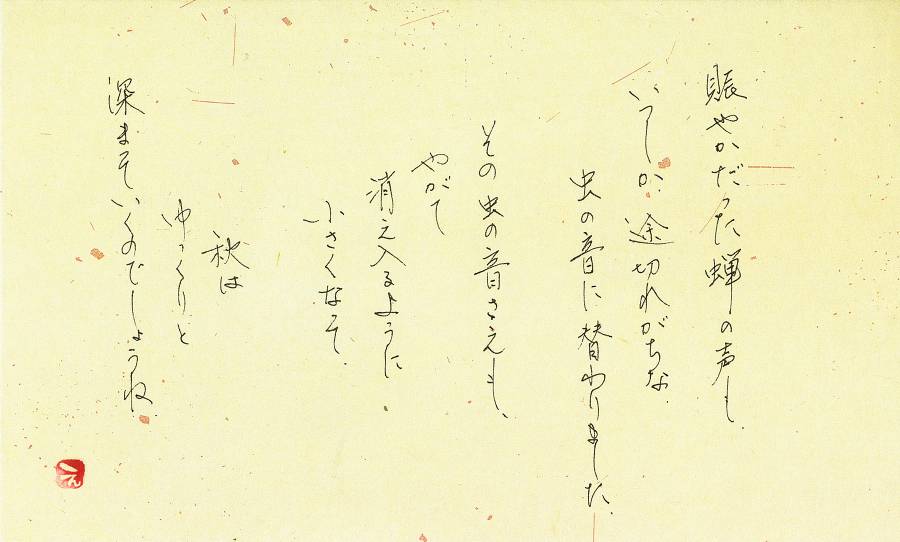 賑やかだった蝉の声も
いつしか、途切れがちな
虫の音に替わりました
その虫の音さえも、
やがて
消え入るように
小さくなって
秋は
ゆっくりと
深まっていくのでしょうね